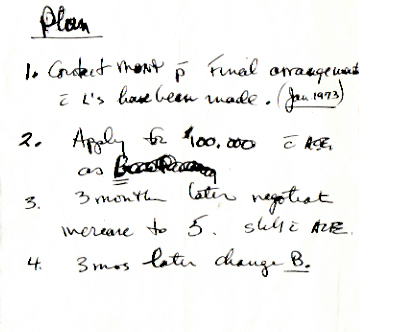 Plan
1. Contact Mont p̄ Final arrangement
c̄ L's have been made. (Jan 1973)
2. Apply for $100.000 c̄
as
3. 3 months later negotiat
increase to 5. still c̄
4. 3 mos later change B.